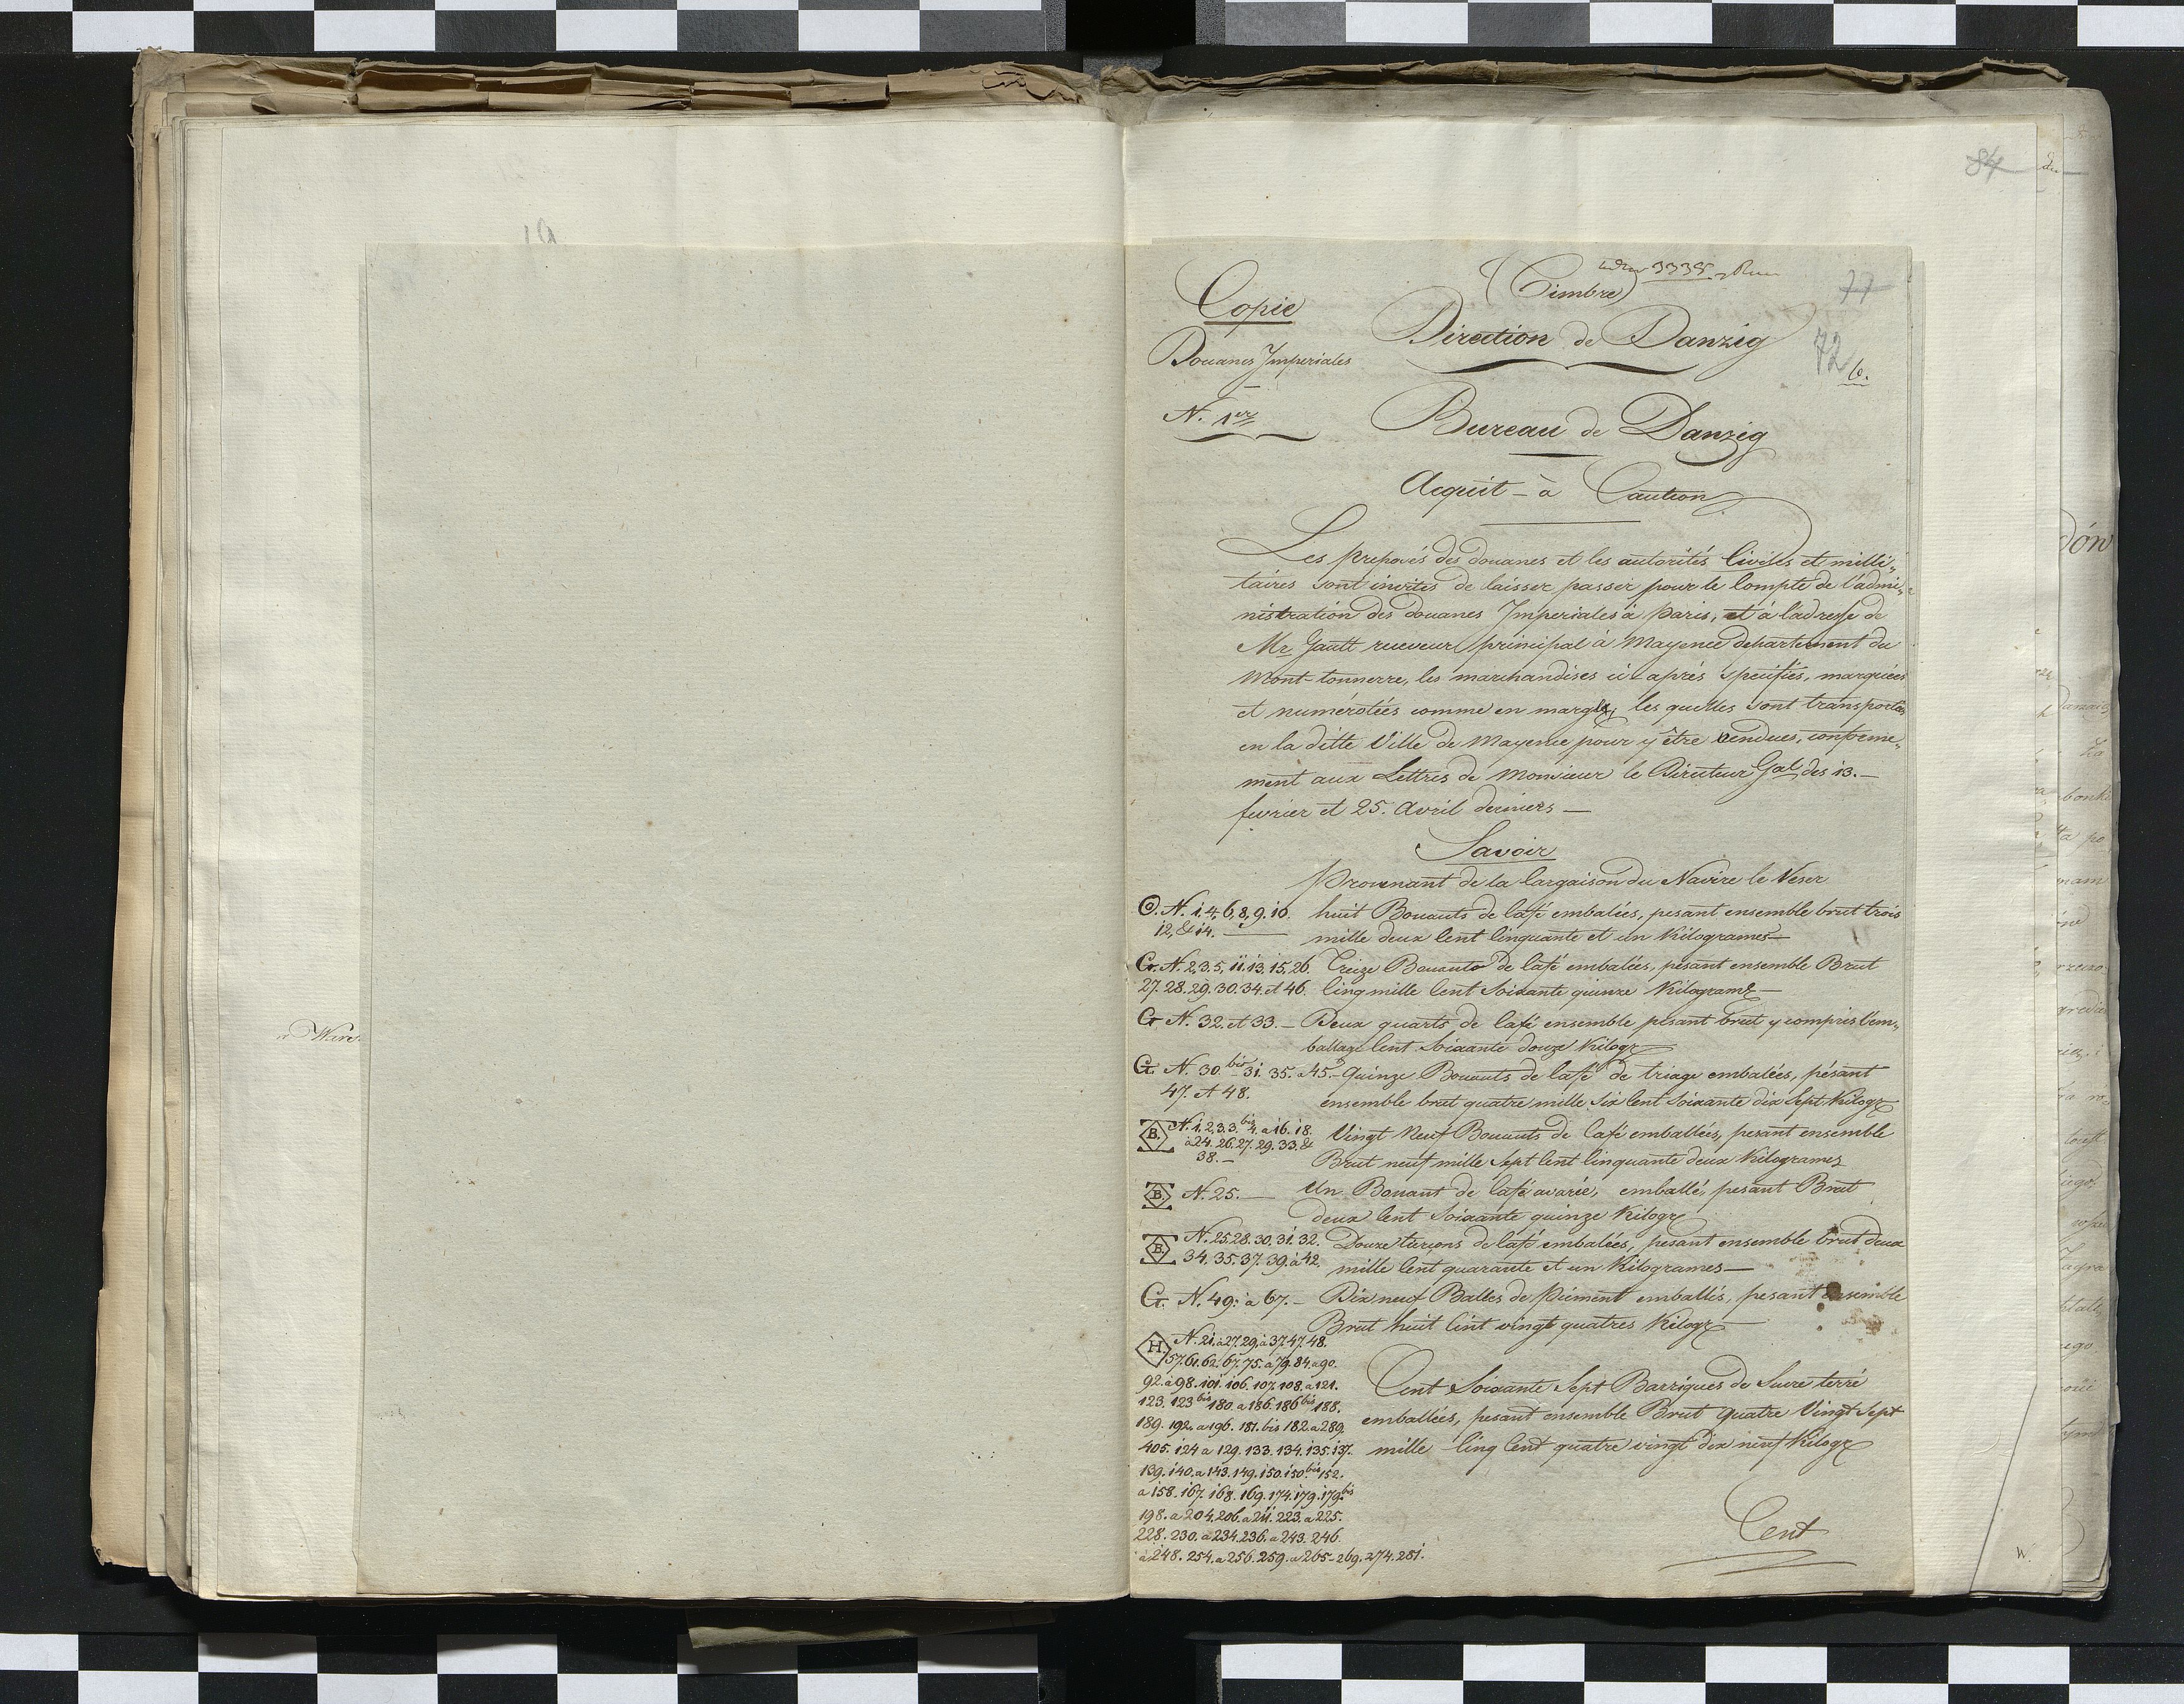 84
Copie
(Timbre)
3335
77
Douanes Imperiales
Direction de Danzig
72
b.
N. 1er
Bureau de Danzig
Acquit-à Caution
Les preposés des douanes et les autorités Civiles et milli„
taires sont invités de laisser passer pour le Compte de l'admi„
nistration des douanes Imperiales à Paris, et à l'adresse de
Mr Gautt receveur principal à Mayence departement du
Mont-tonnerre, les marchandises ci-après spécifiés, marquées
et numérotées comme en marge, les quelles sont transportés
en la ditte Ville de Mayence pour y être vendues, conforme„
ment aux Lettres de Monsieur le Directeur Gal des 13.
fevrier et 25. Avril derniers
Savoir
Provenant de la Cargaison du Navire le Veser
G. N. 1, 4, 6, 8, 9. 10. huit Boucauts de Café embalées, pesant ensemble brut trois
12, & 14. mille deux Cent Cinquante et un Kilogrames
G. N. 2, 3. 5, 11. 13. 15, 26. Treize Boucauts de Café embalées, pesant ensemble Brut
27. 28. 29. 30. 34. et 46. Cinq mille Cent Soixante quinze Kilograme
G N. 32. et 33. Deux quarts de Café ensemble pesant brut y compris l'em„
ballage Cent Soixante douze Kilogr
G. N. 30. bis 31. 35. a 45. Quinze Boucauts de Café de triage embalées, pésant
47. et 48. ensemble brut quatre mille Six Cent Soixante dix Sept Kilogr
B. N. 1. 2. 3. 3. bis 4. a 16. 18. Vingt Neuf Boucauts de Café emballées, pesant ensemble
à 24. 26. 27. 29. 33. &
38. Brut neuf mille Sept Cent Cinquante deux Kilogrames
B. N. 25. Un Boucaut de Café avarié, emballé, pesant Brut
deux Cent Soixante quinze Kilogr
B. N. 25. 28. 30. 31. 32. Douze tierçons de Café embalées, pesant ensemble brut deux
34. 35. 37. 39. à 42. mille Cent quarante et un Kilogrames
G. N. 49. à 67. Dix neuf Balles de Piement emballés, pesant ensemble
Brut huit Cent vingt quatres Kilogr
H. N. 21. a 27. 29. à 37. 47. 48.
57. 61. 62. 67. 75. a 79. 84. a 90.
92. à 98. 101. 106. 107. 108. a 121. Cent Soixante Sept Barriques de Sucre terré
123. 123 bis 180. a 186. 186 bis 188.
189. 192. a 196. 181. bis 182. a 289. emballées, pesant ensemble Brut quatre Vingt Sept
405. 124 a 129. 133. 134. 135. 137. mille Cinq Cent quatre vingt dix neuf Kilogr
139. 140. a 143. 149. 150. 150 bis 152.
a 158. 167. 168. 169. 174. 179. 179. bis
198. a 204. 206. a 211. 223. a 225.
228. 230. a 234. 236. a 243. 246.
a 248. 254. a 256. 259. a 265. 269. 274. 281.
Cent